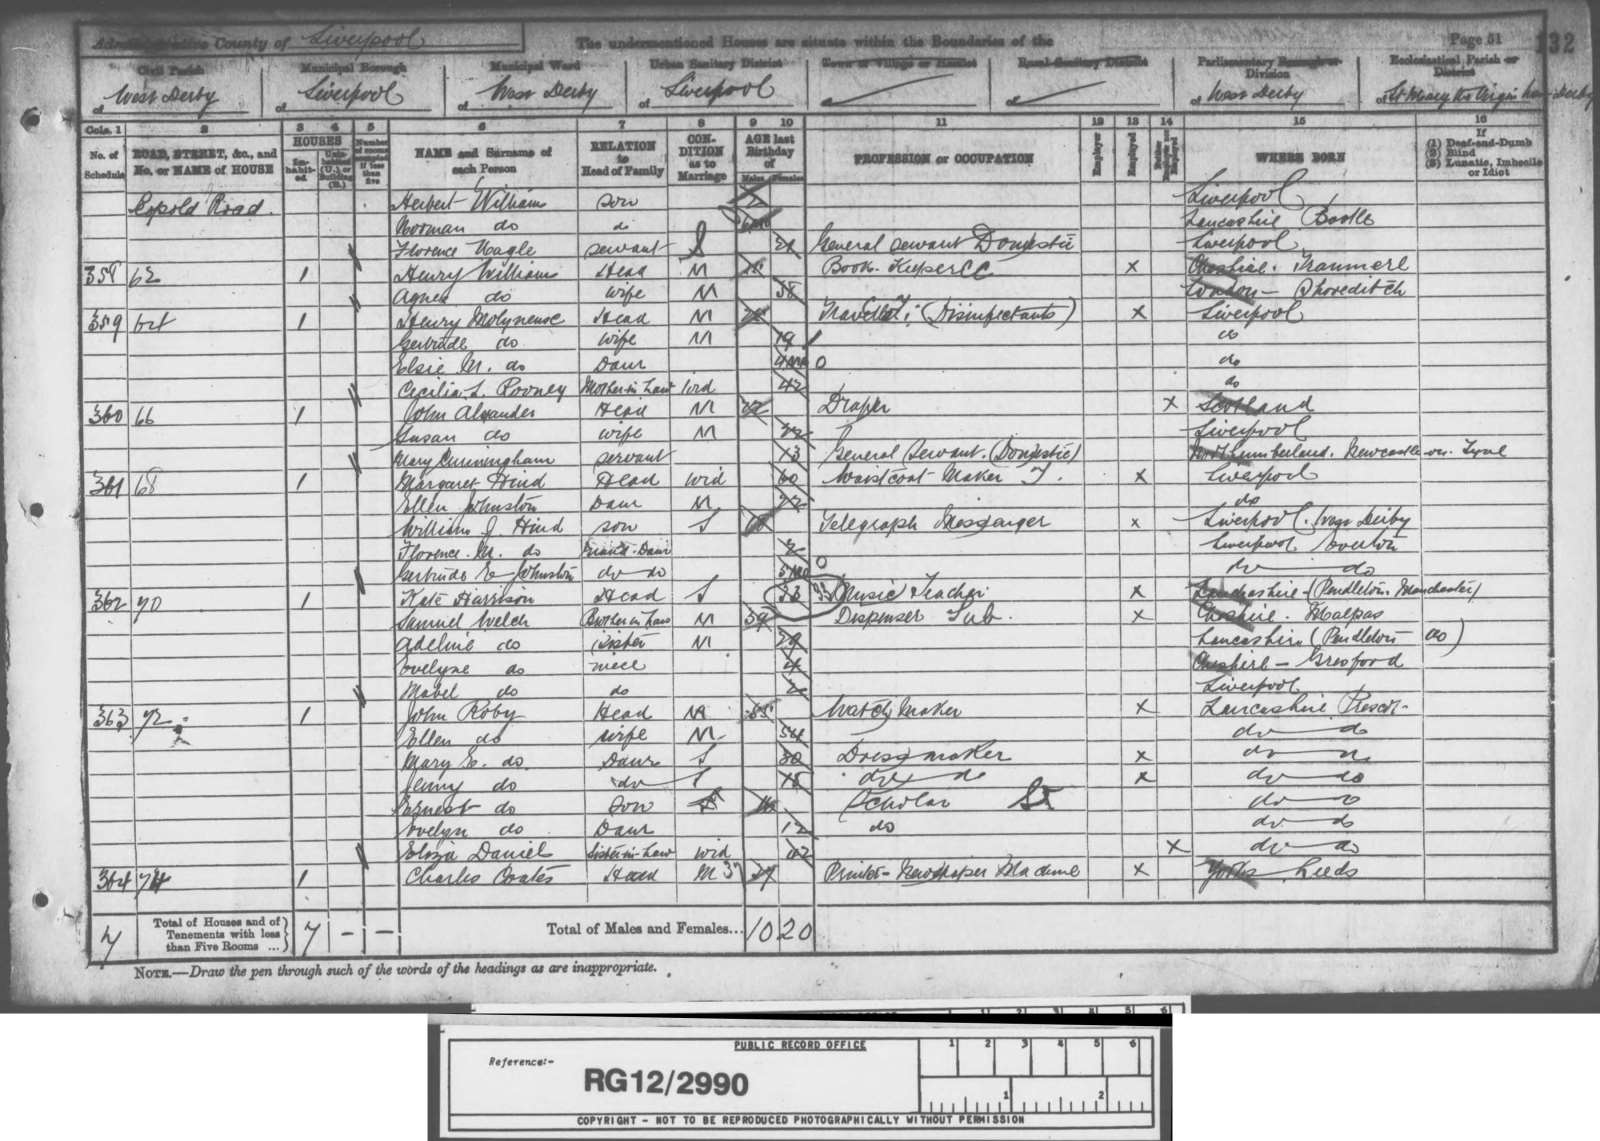 Administrative County of Liverpool
The undermentioned Houses are situate within the Boundaries of the
Page 51
132
Civil Parish of West Derby
Municipal Borough of Liverpool
Municipal Ward of West Derby
Urban Sanitary District of Liverpool
Town or Village or Hamlet of
Rural Sanitary District of
Parliamentary Borough or Division of West Derby
Ecclesiastical Parish or District of St Mary the Virgin West Derby
Cols. 1 2 3 4 5 6 7 8 9 10 11 12 13 14 15 16
No. of Schedule
ROAD, STREET, &c., and No. or NAME of HOUSE
HOUSES
Inhabited
Uninhabited (U.) or Building (B.)
Number of rooms occupied if less than five
NAME and Surname of each Person
RELATION to Head of Family
CONDITION as to Marriage
AGE last Birthday of
Males Females
PROFESSION or OCCUPATION
Employer
Employed
Neither Employer nor Employed
WHERE BORN
If (1) Deaf-and-Dumb (2) Blind (3) Lunatic, Imbecile or Idiot
Road Herbert William son Liverpool
Norman do Lancashire Bootle
Florence Nagle servant S General servant Domestic Liverpool
358 62 1 Henry William Head M Book-Keeper CC X Cheshire. Tranmere
Agnes do wife M 58 London - Shoreditch
359 64 1 Henry Molyneux Head M Traveller (Disinfectants) X Liverpool
Gertrude do wife M 19 do
Elsie M. do Daur do
Cecilia L. Rooney Mother in Law Wid 42 do
360 66 1 John Alexander Head M Draper X Scotland
Susan do wife M Liverpool
Mary Cunningham servant 13 General Servant. (Domestic) Northumberland. Newcastle-on-Tyne
361 68 1 Margaret Hind Head Wid 60 Waistcoat Maker T. X Liverpool
Ellen Johnston Daur M do
William J. Hind son S Telegraph Messenger x Liverpool. West Derby
Florence. M. do Grand-Daur 2 Liverpool Everton
Gertrude E Johnston do do do do
362 70 1 Kate Harrison Head S 33 33 Music Teacher X Lancashire - (Pendleton Manchester)
Samuel Welch Brother in Law M 39 Dispenser Sub. X Cheshire. Malpas
Adeline do Sister M 29 Lancashire (Pendleton do)
Evelyne do niece 4 Cheshire - Gresford
Mabel do do 2 Liverpool
363 72 1 John Roby Head M 55 Watch Maker X Lancashire Prescot
Ellen do wife M 54 do do
Mary E. do. Daur S 30 Dressmaker X do do
Jenny do do S 18 do do X do do
Ernest do Son Scholar St do do
Evelyn do Daur 12 do do do
Eliza Daniel Sister-in-Law Wid X do do
364 74 1 Charles Coates Head M 37 Printer - Newspaper Machine X Yorks Leeds
7 Total of Houses and of Tenements with less than Five Rooms ... 7 - - Total of Males and Females... 10 20
NOTE.—Draw the pen through such of the words of the headings as are inappropriate.
PUBLIC RECORD OFFICE
Reference:-
RG12/2990
1 2 3 4 5 6
1 2
COPYRIGHT - NOT TO BE REPRODUCED PHOTOGRAPHICALLY WITHOUT PERMISSION